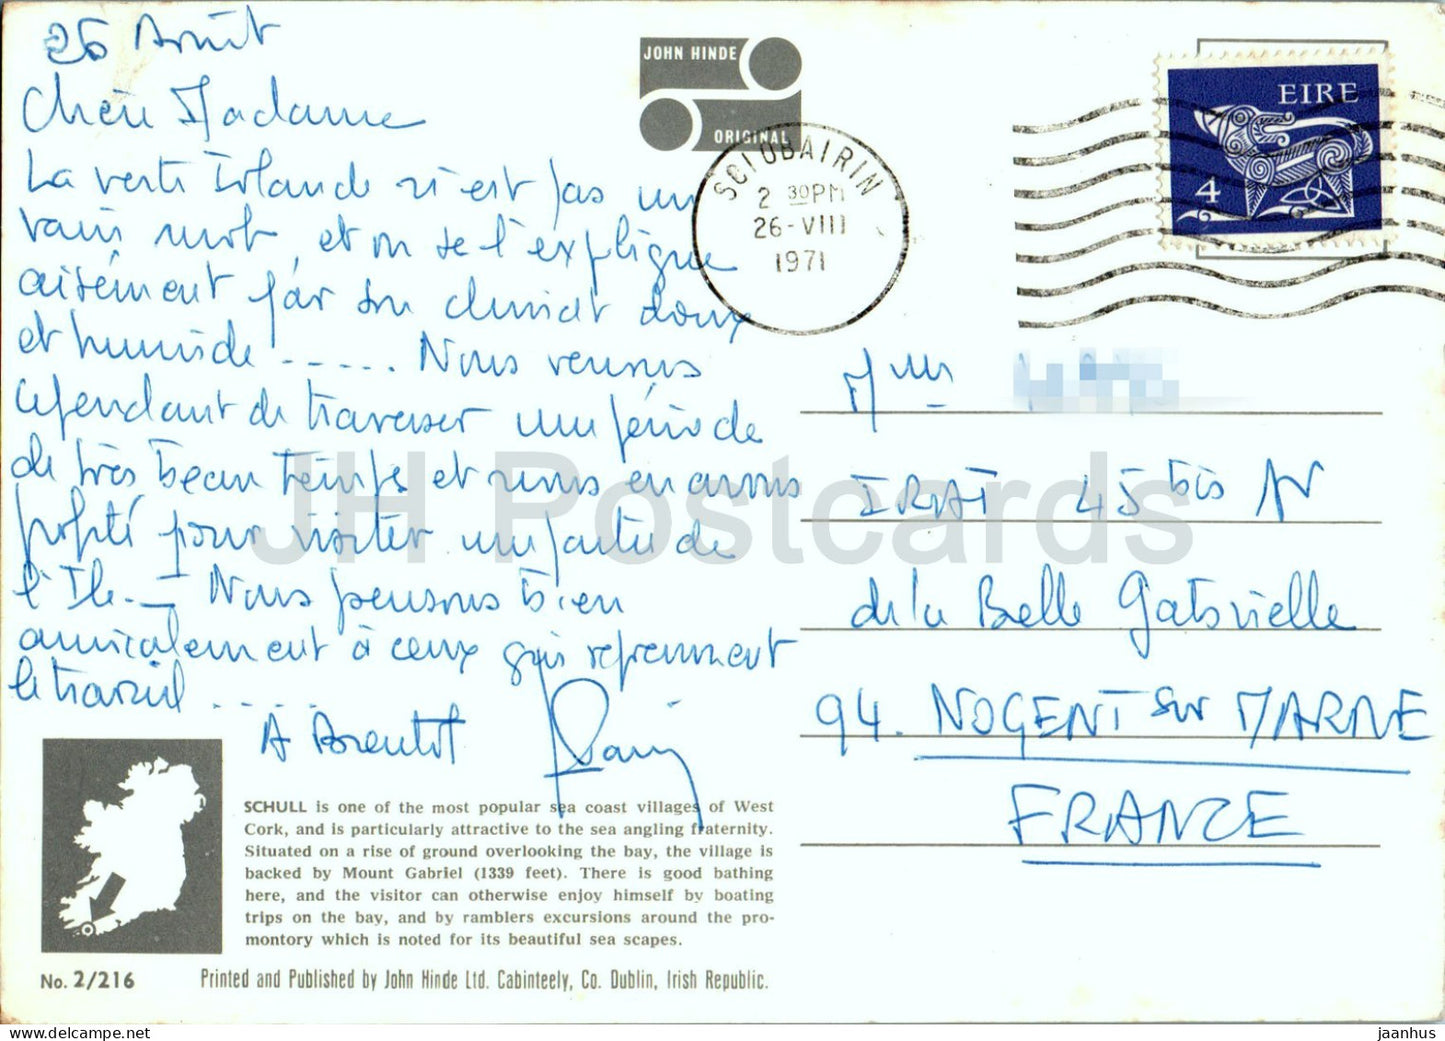 26 Août
Chère Madame
La verte Irlande n'est pas un
vain mot, et on se l'explique
aisément par son climat doux
et humide ..... Nous venons
cependant de traverser une période
de très beau temps et nous en avons
profité pour visiter une partie de
l'Ile. _ Nous pensons bien
amicalement à ceux qui reprennent
le travail .....
A Bientôt
JOHN HINDE
ORIGINAL
SCIOBAIRIN
2 30PM
26-VIII
1971
EIRE
4
Mme
IRAT 45 bis Av
de la Belle Gabrielle
94. NOGENT sur MARNE
FRANCE
JH Postcards
SCHULL is one of the most popular sea coast villages of West
Cork, and is particularly attractive to the sea angling fraternity.
Situated on a rise of ground overlooking the bay, the village is
backed by Mount Gabriel (1339 feet). There is good bathing
here, and the visitor can otherwise enjoy himself by boating
trips on the bay, and by ramblers excursions around the pro-
montory which is noted for its beautiful sea scapes.
No. 2/216
Printed and Published by John Hinde Ltd. Cabinteely, Co. Dublin, Irish Republic.
www.delcampe.net
jaanhus